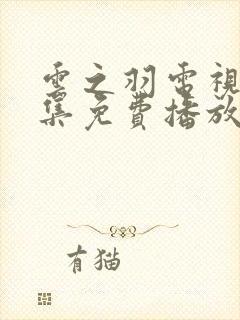 雲之羽電視
集免費播放
有猫